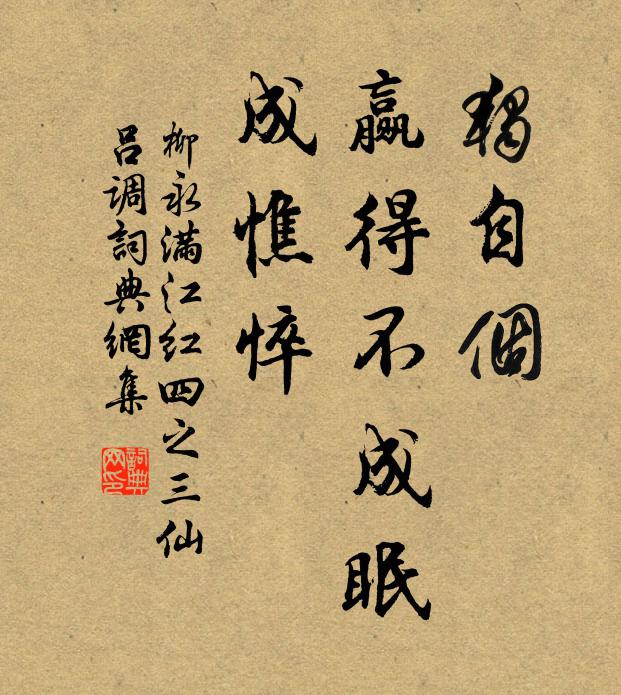 獨自個
贏得不成眠
成憔悴
柳永滿江紅四之三仙
呂调詞典網集
詞典
网印